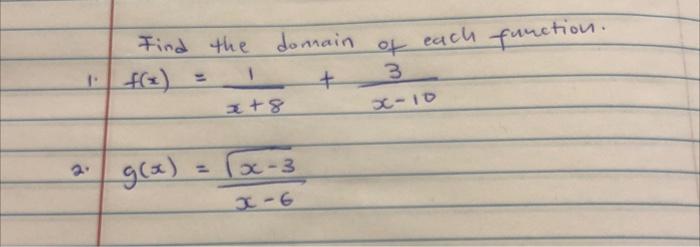 Find the domain of each function.
1. f(x) = 1/(x+8) + 3/(x-10)
2. g(x) = √(x-3)/(x-6)